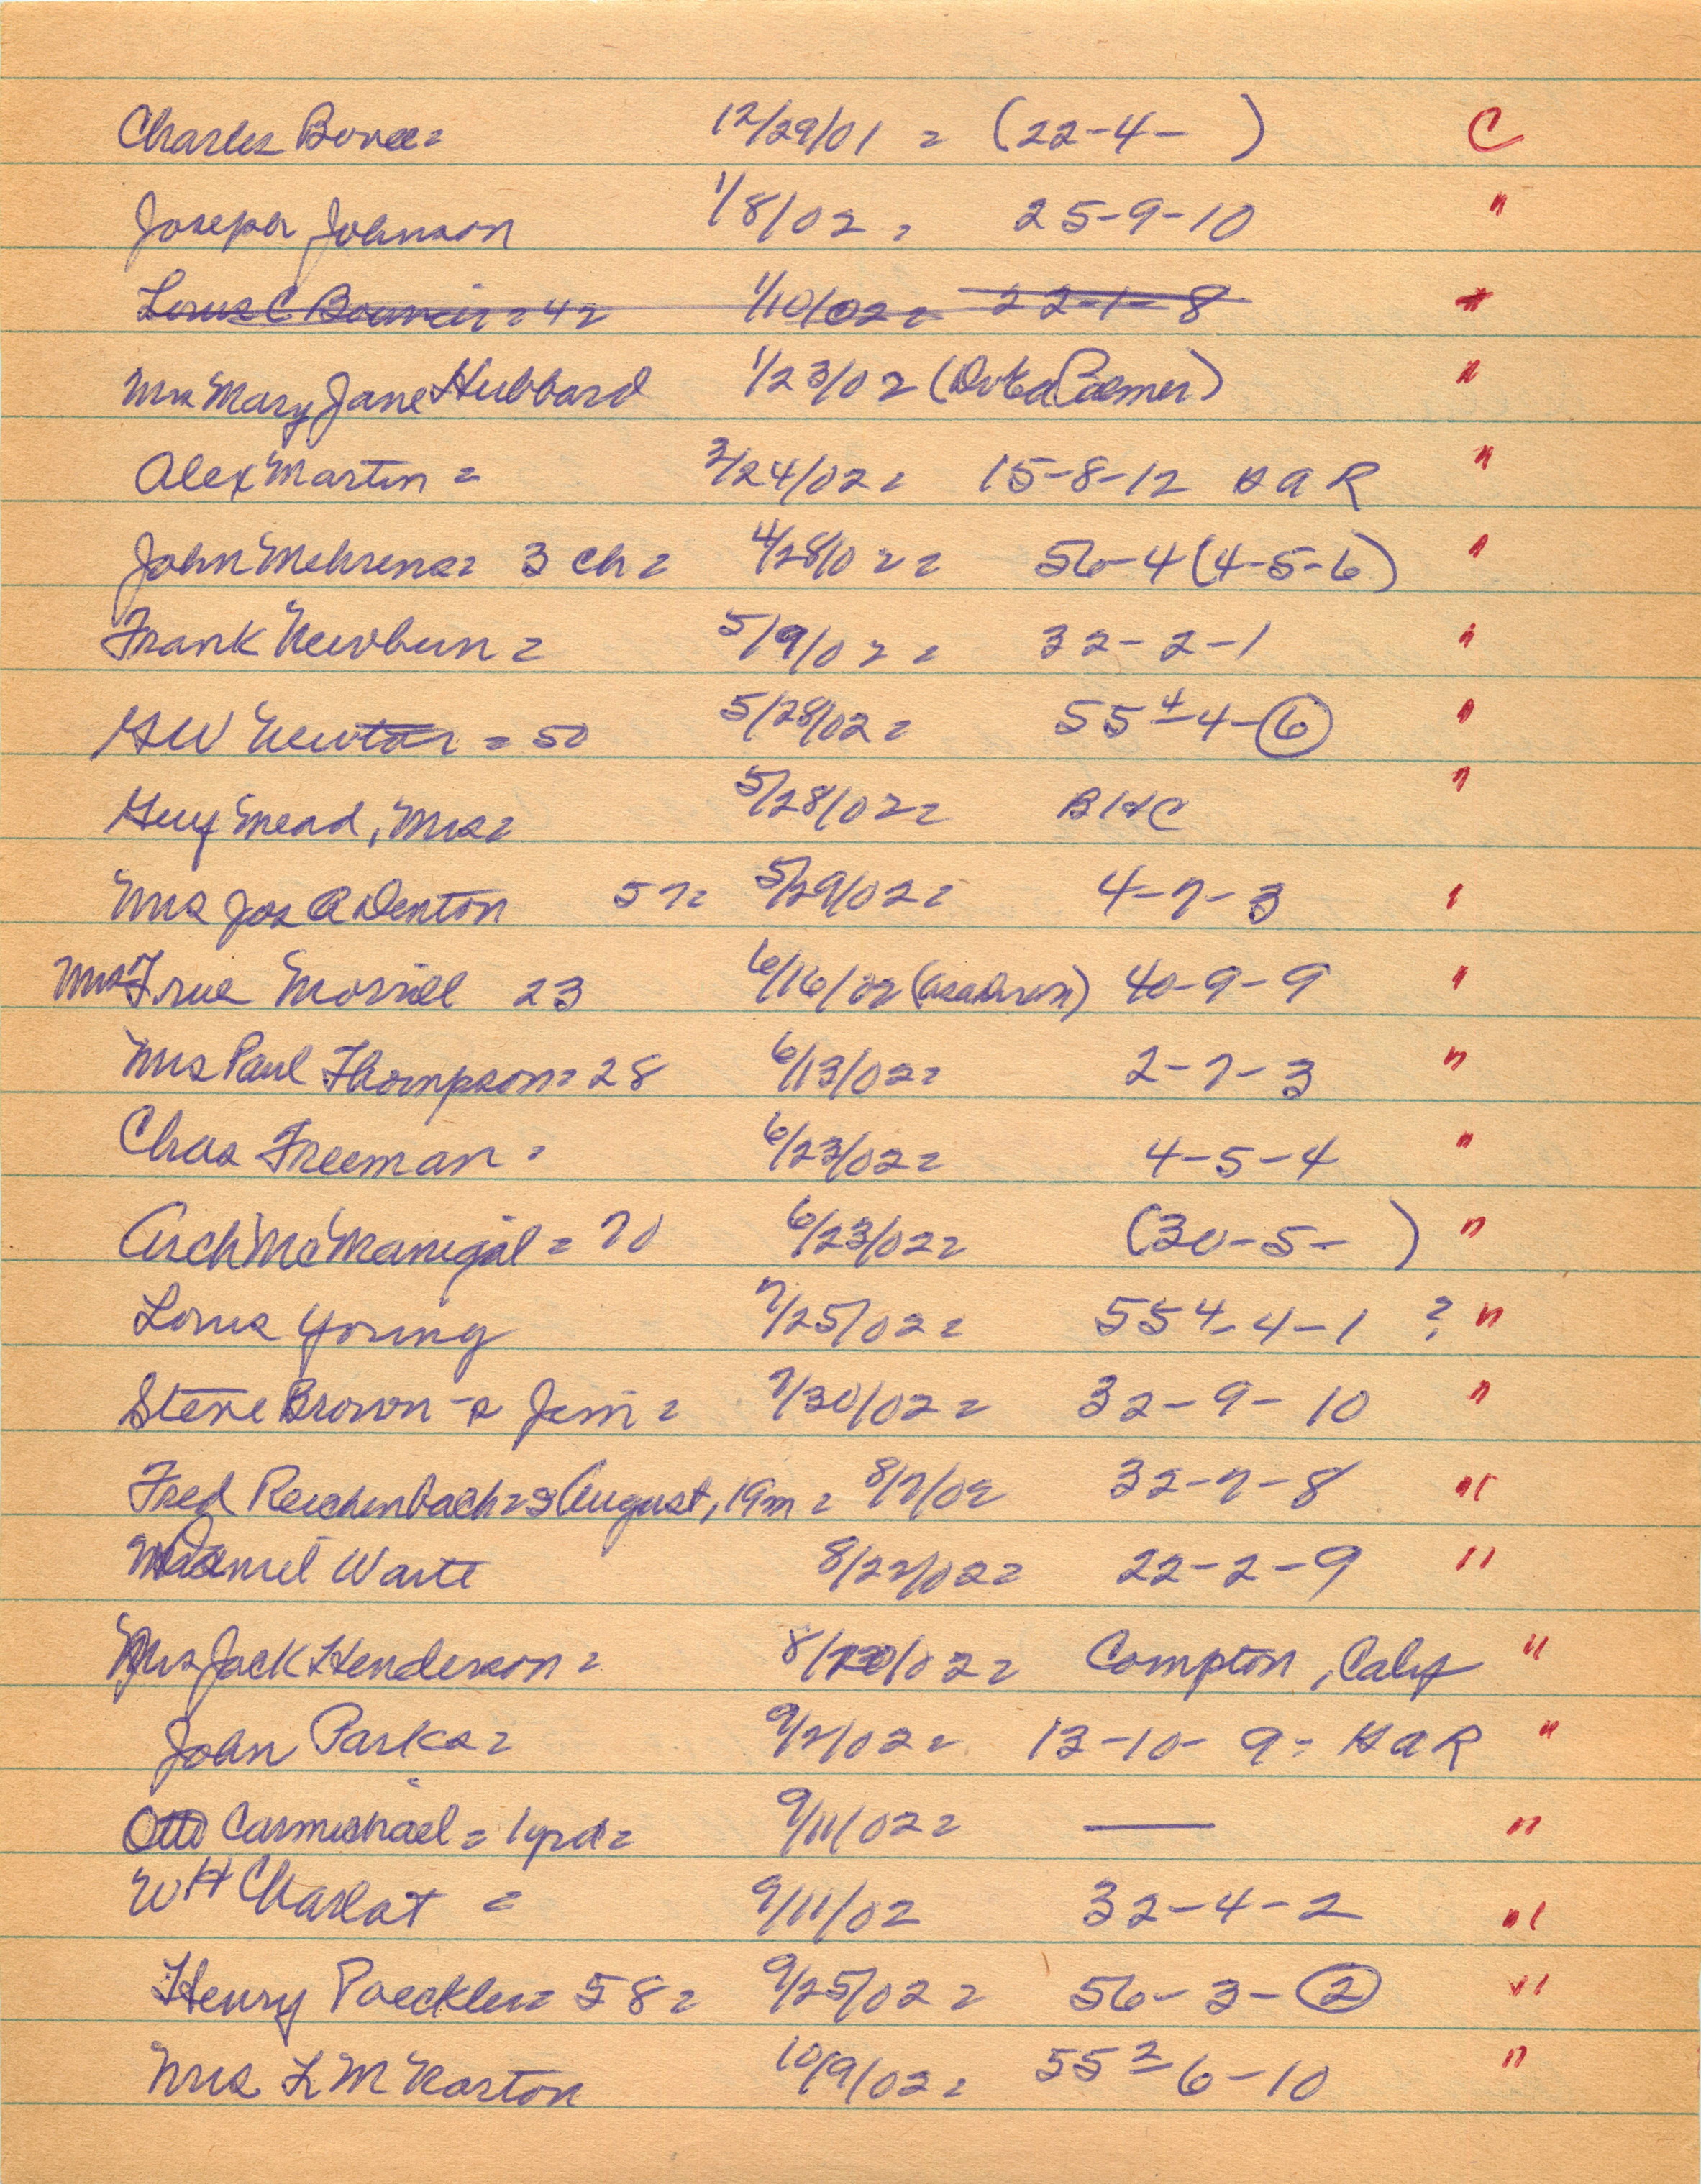 Charles Bovee = 12/29/01 = (22-4- ) C
Joseph Johnson 1/8/02 = 25-9-10 "
Louis C = 42 1/10/02 = 22-1-8 "
Mrs Mary Jane Hubbard 1/23/02 (Palmer) "
Alex Martin = 3/24/02 = 15-8-12 HAR "
John Mehrens = 3 ch = 4/28/02 = 56-4 (4-5-6) "
Frank Newbern = 5/9/02 = 32-2-1 "
GW Newton = 50 5/28/02 = 55 4-4-6 "
Guy Mead, Mrs = 5/28/02 = BHC "
Mrs Jos A Denton 57 = 5/29/02 = 4-7-3 "
Mrs True Morrill 23 6/16/02 40-9-9 "
Mrs Paul Thompson = 28 6/13/02 = 2-7-3 "
Chas Freeman = 6/23/02 = 4-5-4 "
Arch McManigal = 70 6/23/02 = (30-5- ) "
Louis Young 7/25/02 = 55 4-4-1 ? "
Steve Brown - s Jim = 7/30/02 = 32-9-10 "
Fred Reichenbach = s August, 19m = 8/7/02 32-7-8 "
Daniel Waite 8/22/02 = 22-2-9 "
Mrs Jack Henderson = 8/ /02 = Compton, Calif "
John Parks = 9/2/02 = 13-10-9 = HAR "
Otto Carmichael = 1yrd = 9/11/02 = — "
WH Charlot = 9/11/02 32-4-2 "
Henry Poeckler = 58 = 9/25/02 = 56-3-2 "
Mrs L M Karton 10/9/02 = 55 2-6-10 "